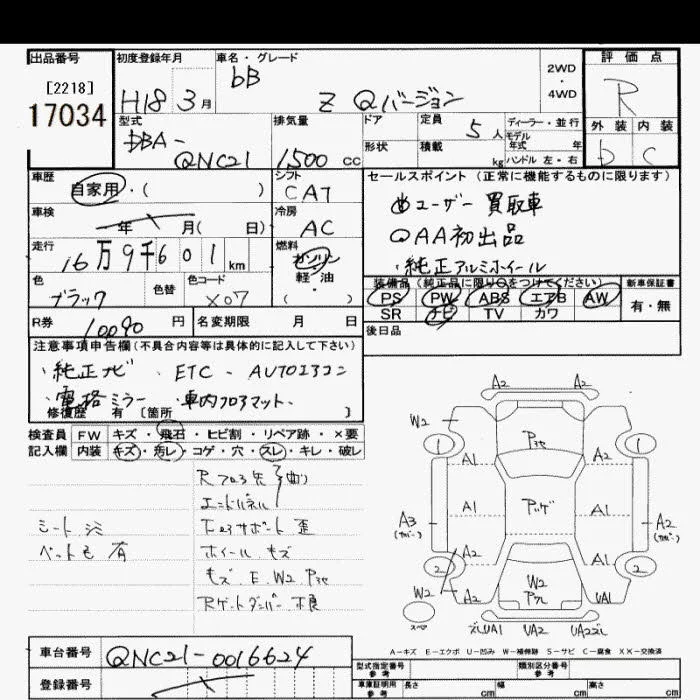 出品番号 初度登録年月 車名・グレード 評価点
[2218] 17034
H18 3月 bB 2WD・4WD R
Z Qバージョン
型式 排気量 ドア 定員 5人 ディーラー・並行 外装 内装
DBA-QNC21 1500cc 形状 積載 kg モデル年式 年 ハンドル 左・右 b C
車歴 自家用・( ) シフト CAT セールスポイント (正常に機能するものに限ります)
車検 年 月( 日) 冷房 AC ユーザー買取車
QAA初出品
走行 16万9千601km 燃料 ガソリン・軽油・( ) ・純正アルミホイール
色 ブラック 色替 色コード X07
装備品(純正品に限り○をつけてください) 新車保証書
PS PW ABS エアB AW 有・無
SR ナビ TV カワ
R券 10090円 名変期限 月 日 後日品
注意事項申告欄(不具合内容等は具体的に記入して下さい)
・純正ナビ ・ETC ・AUTOエアコン
・電格ミラー ・車内フロアマット
修復歴 有 [箇所 ]
検査員 FW キズ・飛石・ヒビ割・リペア跡・×要
記入欄 内装 キズ・汚レ・コゲ・穴・スレ・キレ・破レ
Rフロア先 曲り
エンドパネル
シート シミ コアサポート 歪
ペット毛 有 ホイール キズ
キズ、E、W2 Pカエ
Rゲートダンパー 不良
A2 A2
W2 1 Pカエ 1
A1 A1
A3 (カバー) A1 Pルーフ A1 A2 (カバー)
A2 A1
2 2
W2 A2 W2 UA1
スペア
ズレUA1 UA2 UA2ズレ
A-キズ E-エクボ U-凹み W-補修跡 S-サビ C-腐食 XX-交換済
車台番号 QNC21-0016624
型式指定番号 参考 類別区分番号 参考
登録番号
車庫証明用 参考 長さ cm 幅 cm 高さ cm